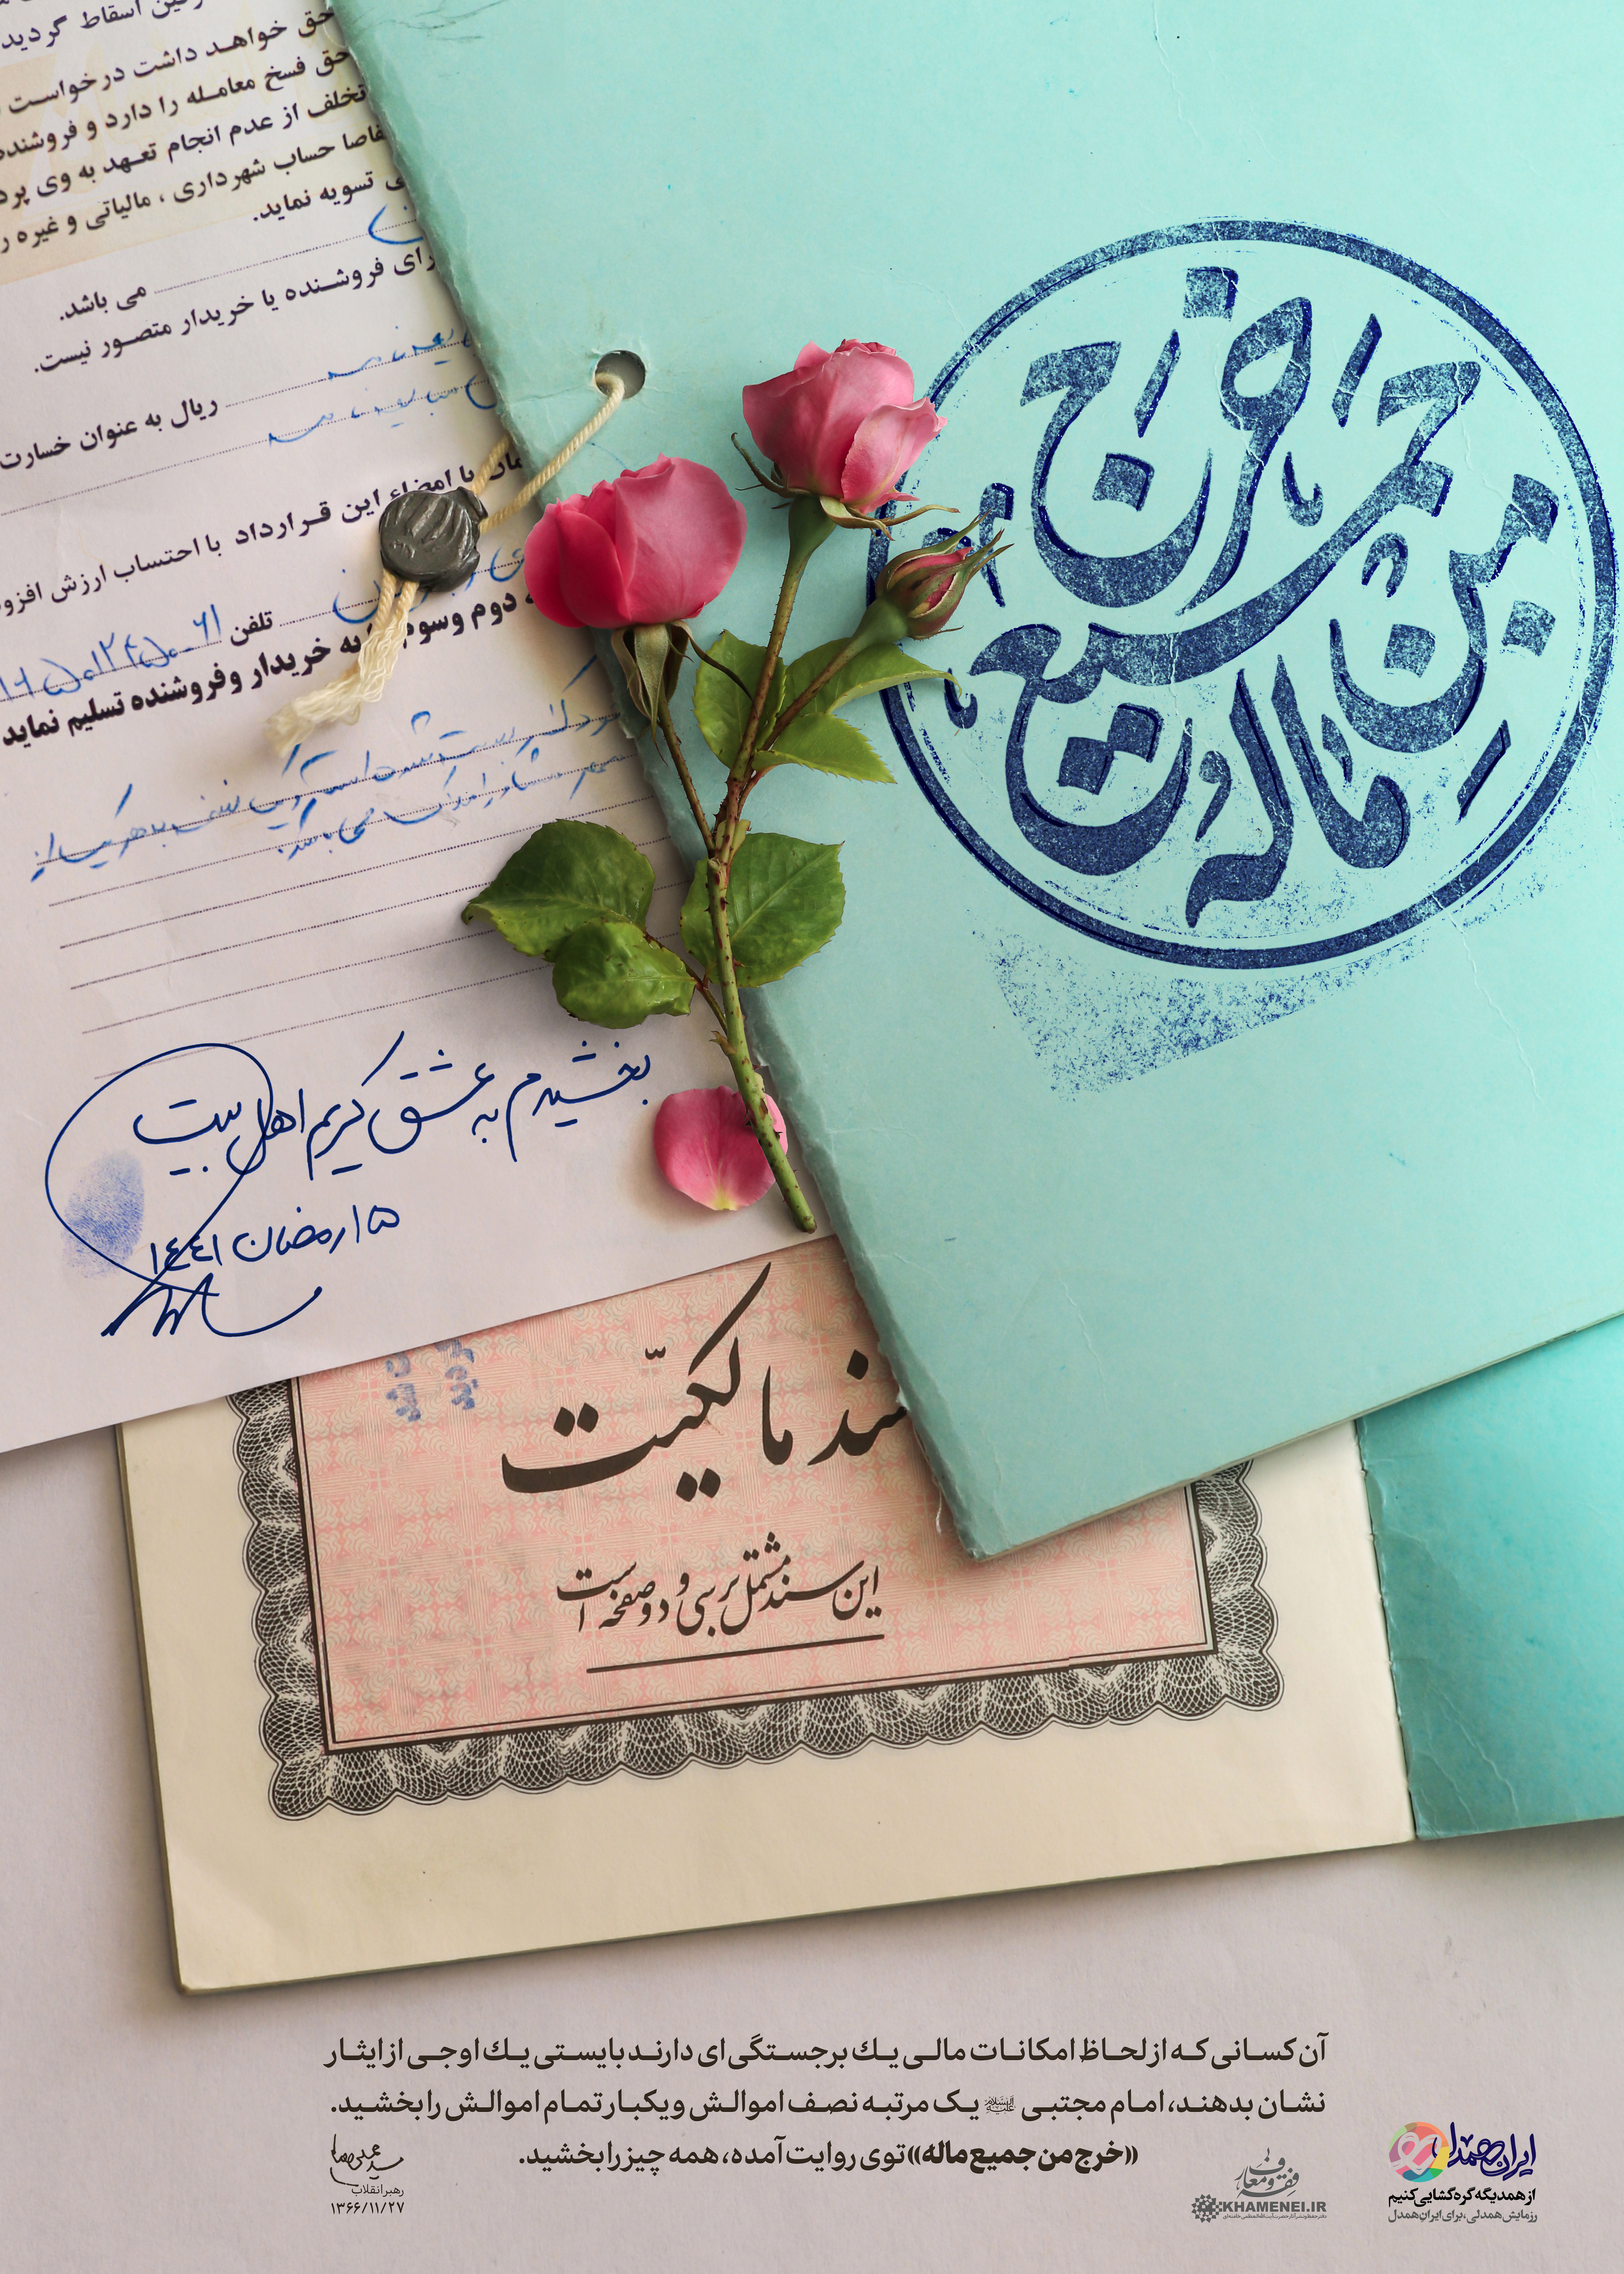 رفین اسقاط گردید
حق خواهد داشت درخواست
حق فسخ معامله را دارد و فروشنده
تخلف از عدم انجام تعهد به وی پرد
فاصا حساب شهرداری ، مالیاتی و غیره ر
تسویه نماید.
می باشد.
رای فروشنده یا خریدار متصور نیست.
ریال به عنوان خسارت
با امضاء این قرارداد با احتساب ارزش افزو
تلفن
دوم وسوم به خریدار وفروشنده تسلیم نماید
بخشیدم به عشق کریم اهل بیت
۱۵ رمضان ۱۴۴۱
خرج من جمیع ماله
سند مالکیّت
این سند مشتمل بر سی و دو صفحه است
آن کسانی که از لحاظ امکانات مالی یك برجستگی‌ای دارند بایستی یك اوجی از ایثار
نشان بدهند، امام مجتبی علیه‌السلام یک مرتبه نصف اموالش و یکبار تمام اموالش را بخشید.
«خرج من جمیع ماله» توی روایت آمده، همه چیز را بخشید.
رهبر انقلاب
۱۳۶۶/۱۱/۲۷
فقه و معارف
KHAMENEI.IR
ایران همدل
از همدیگه گره‌گشایی کنیم
رزمایش همدلی، برای ایران همدل